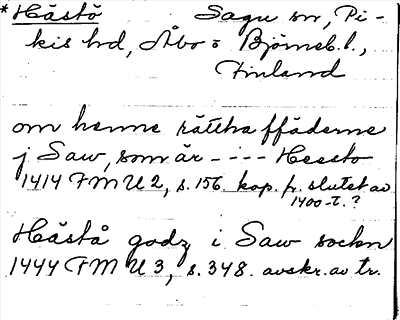 *Hästö Sagu sn, Pi-
kis hd, Åbo o Björneb. l.,
Finland
om henne rättha ffäderne
j Saw, som är - - - - Heesto
1414 FMU 2, s. 156. kop. fr. slutet av
1400-t.?
Hästå godz i Saw sockn
1444 FMU 3, s. 348. avskr. av tr.